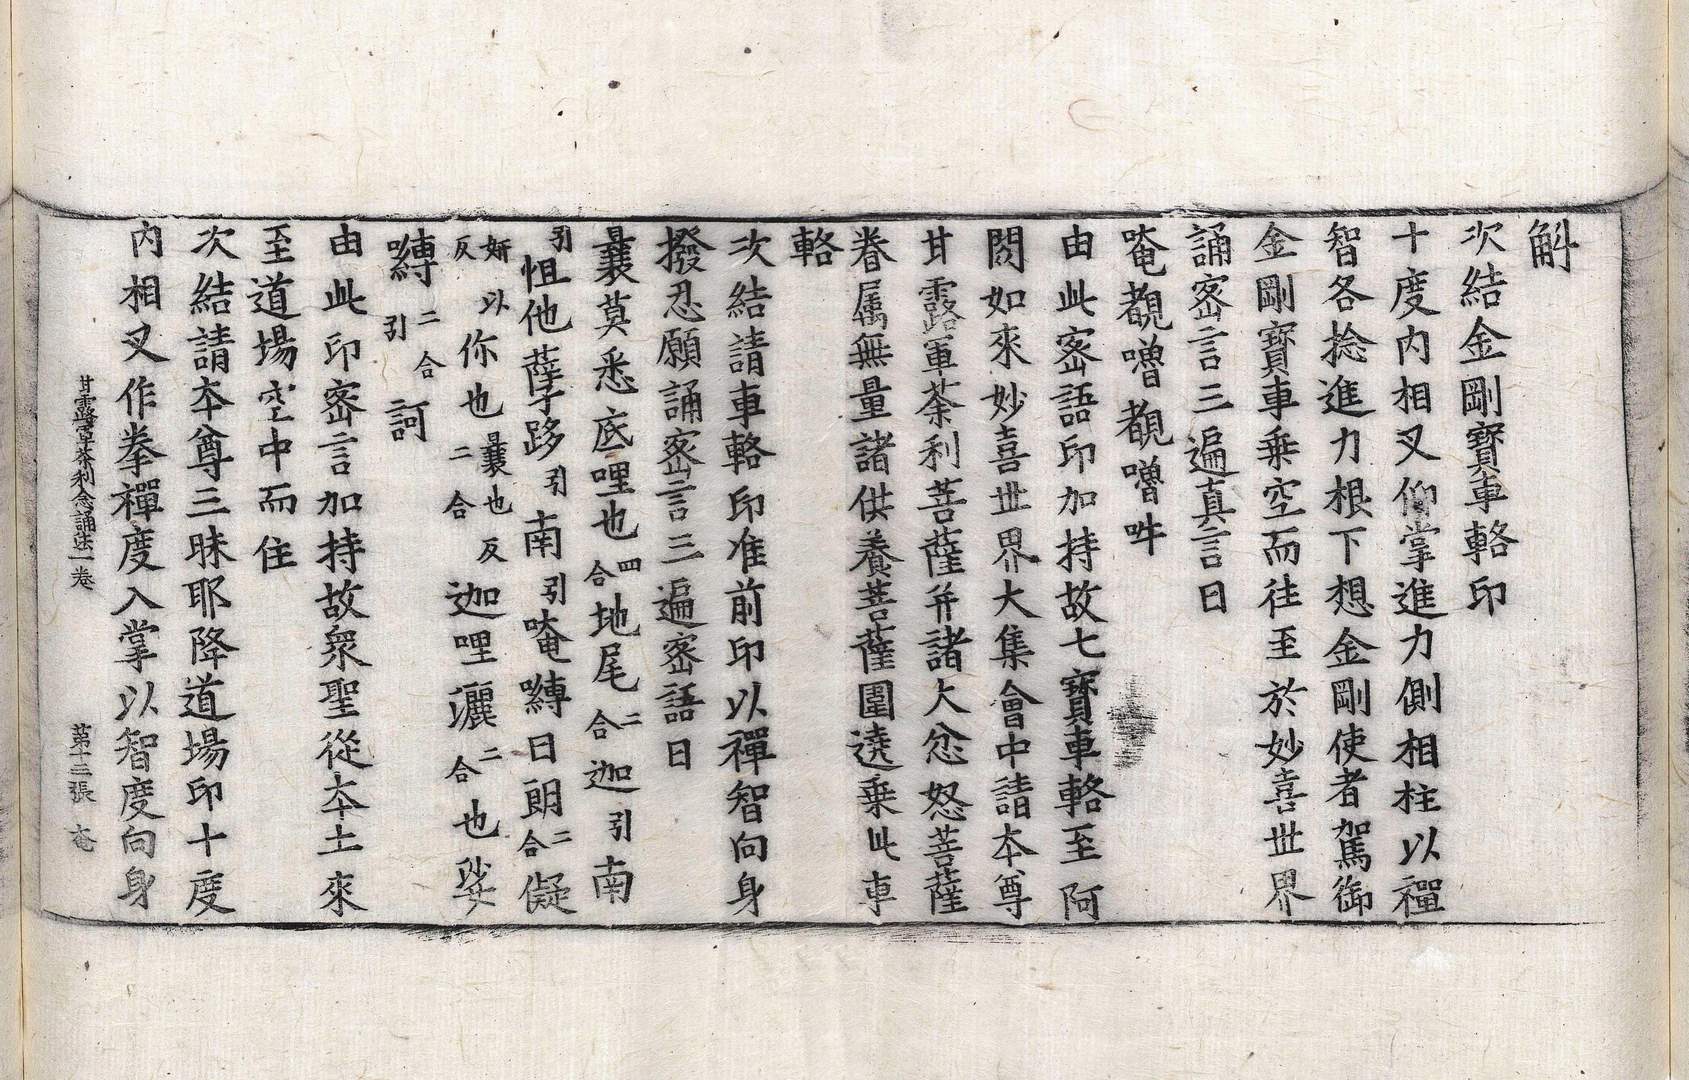 斛
次結金剛寶車輅印
十度内相叉仰掌進力側相柱以禪
智各捻進力根下想金剛使者駕御
金剛寶車乗空而往至於妙喜世界
誦密言三遍真言曰
唵覩嚕覩嚕吽
由此密語印加持故七寶車輅至阿
閦如來妙喜世界大集會中請夲尊
甘露軍荼利菩薩幷諸大忿怒菩薩
眷属無量諸供養菩薩圍遶乗此車
輅
次結請車輅印准前印以禪智向身
撥忍願誦密言三遍密語曰
曩莫悉底哩也四合地尾二合迦引南
引怛他蘖哆引南引唵嚩日朗二合儗
妍以反你也曩也反二合迦哩灑二合也娑
嚩二合引訶
由此印密言加持故衆聖從夲土來
至道場空中而住
次結請夲尊三昧耶降道場印十度
内相叉作拳禪度入掌以智度向身
甘露軍荼利念誦法一卷 苐十二張 奄